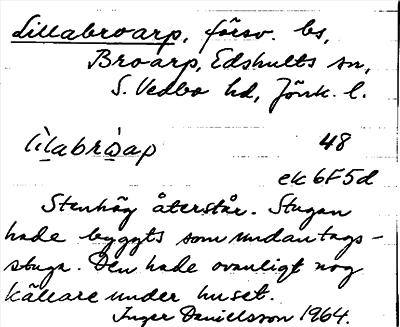 Lillabroarp, försv. bs,
Broarp, Edshults sn,
S. Vedbo hd, Jönk. l.
lìlabrὼap 48
ek 6F5d
Stenhög återstår. Stugan
hade byggts som undantags-
stuga. Den hade ovanligt nog
källare under huset.
Inger Danielsson 1964.